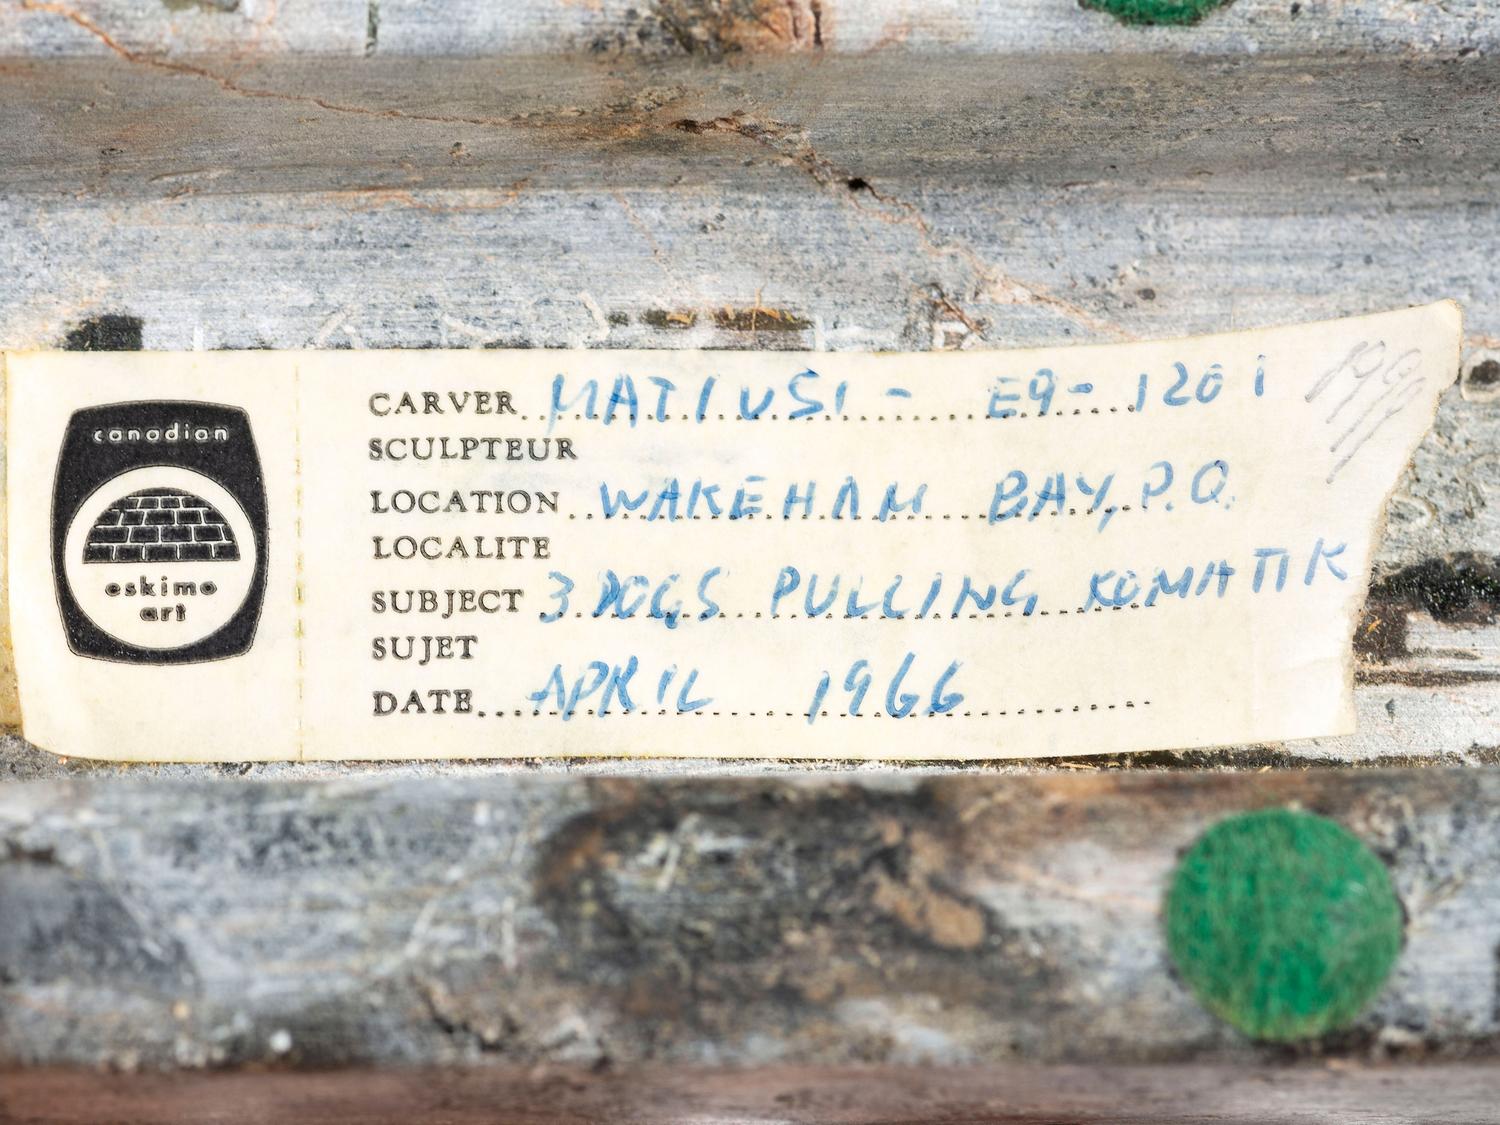 canadian
eskimo
art
CARVER MATIUSI - E9- 1201
SCULPTEUR
LOCATION WAKEHAM BAY, P.Q.
LOCALITE
SUBJECT 3 DOGS PULLING KOMATIK
SUJET
DATE APRIL 1966